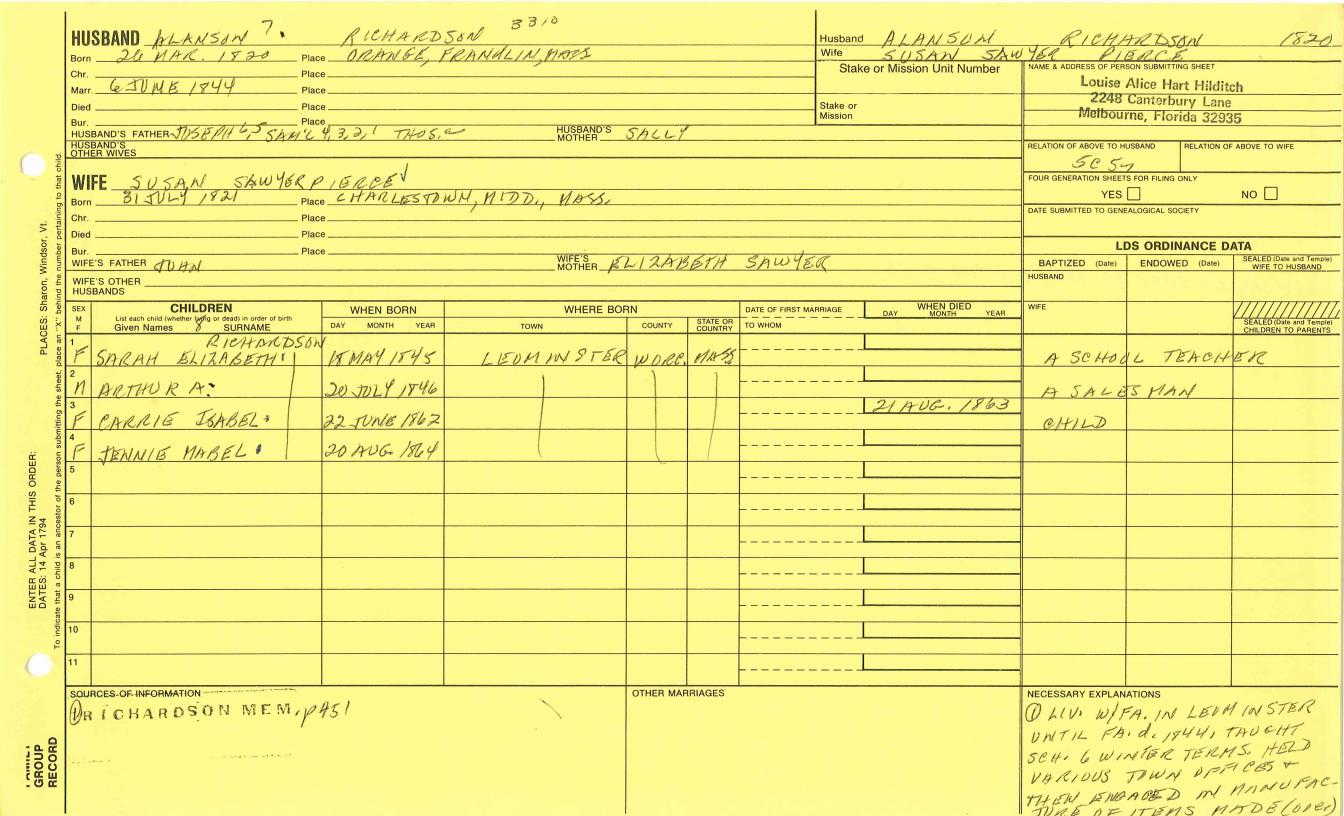 HUSBAND ALANSON 7. RICHARDSON 3310
Born 26 MAR. 1820 Place ORANGE, FRANKLIN, MASS
Chr. Place
Marr. 6 JUNE 1844 Place
Died Place
Bur. Place
HUSBAND'S FATHER JOSEPH 6,5 SAM'L 4,3,2,1 THOS. HUSBAND'S MOTHER SALLY
HUSBAND'S OTHER WIVES
WIFE SUSAN SAWYER PIERCE
Born 31 JULY 1821 Place CHARLESTOWN, MIDD., MASS.
Chr. Place
Died Place
Bur. Place
WIFE'S FATHER JOHN WIFE'S MOTHER ELIZABETH SAWYER
WIFE'S OTHER HUSBANDS
Husband ALANSON RICHARDSON 1820
Wife SUSAN SAWYER PIERCE
Stake or Mission Unit Number
Stake or Mission
NAME & ADDRESS OF PERSON SUBMITTING SHEET
Louise Alice Hart Hilditch
2248 Canterbury Lane
Melbourne, Florida 32935
RELATION OF ABOVE TO HUSBAND RELATION OF ABOVE TO WIFE
5C 5
FOUR GENERATION SHEETS FOR FILING ONLY
YES NO
DATE SUBMITTED TO GENEALOGICAL SOCIETY
LDS ORDINANCE DATA
BAPTIZED (Date) ENDOWED (Date) SEALED (Date and Temple) WIFE TO HUSBAND
HUSBAND
WIFE
SEALED (Date and Temple) CHILDREN TO PARENTS
SEX M F
CHILDREN
List each child (whether living or dead) in order of birth
Given Names 8 SURNAME
WHEN BORN
DAY MONTH YEAR
WHERE BORN
TOWN COUNTY STATE OR COUNTRY
DATE OF FIRST MARRIAGE
TO WHOM
WHEN DIED
DAY MONTH YEAR
RICHARDSON
1 F SARAH ELIZABETH 18 MAY 1845 LEOMINSTER WORC. MASS A SCHOOL TEACHER
2 M ARTHUR A. 20 JULY 1846 A SALESMAN
3 F CARRIE ISABEL 22 JUNE 1862 21 AUG. 1863 CHILD
4 F JENNIE MABEL 20 AUG. 1864
5
6
7
8
9
10
11
SOURCES OF INFORMATION
① RICHARDSON MEM. p451
OTHER MARRIAGES
NECESSARY EXPLANATIONS
① LIV. W/FA. IN LEOMINSTER
UNTIL FA. d. 1844, TAUGHT
SCH. 6 WINTER TERMS. HELD
VARIOUS TOWN OFFICES +
THEN ENGAGED IN MANUFAC-
TURE OF ITEMS MADE (over)
ENTER ALL DATA IN THIS ORDER:
DATES: 14 Apr 1794 PLACES: Sharon, Windsor, Vt.
To indicate that a child is an ancestor of the person submitting the sheet, place an "X" behind the number pertaining to that child.
FAMILY GROUP RECORD